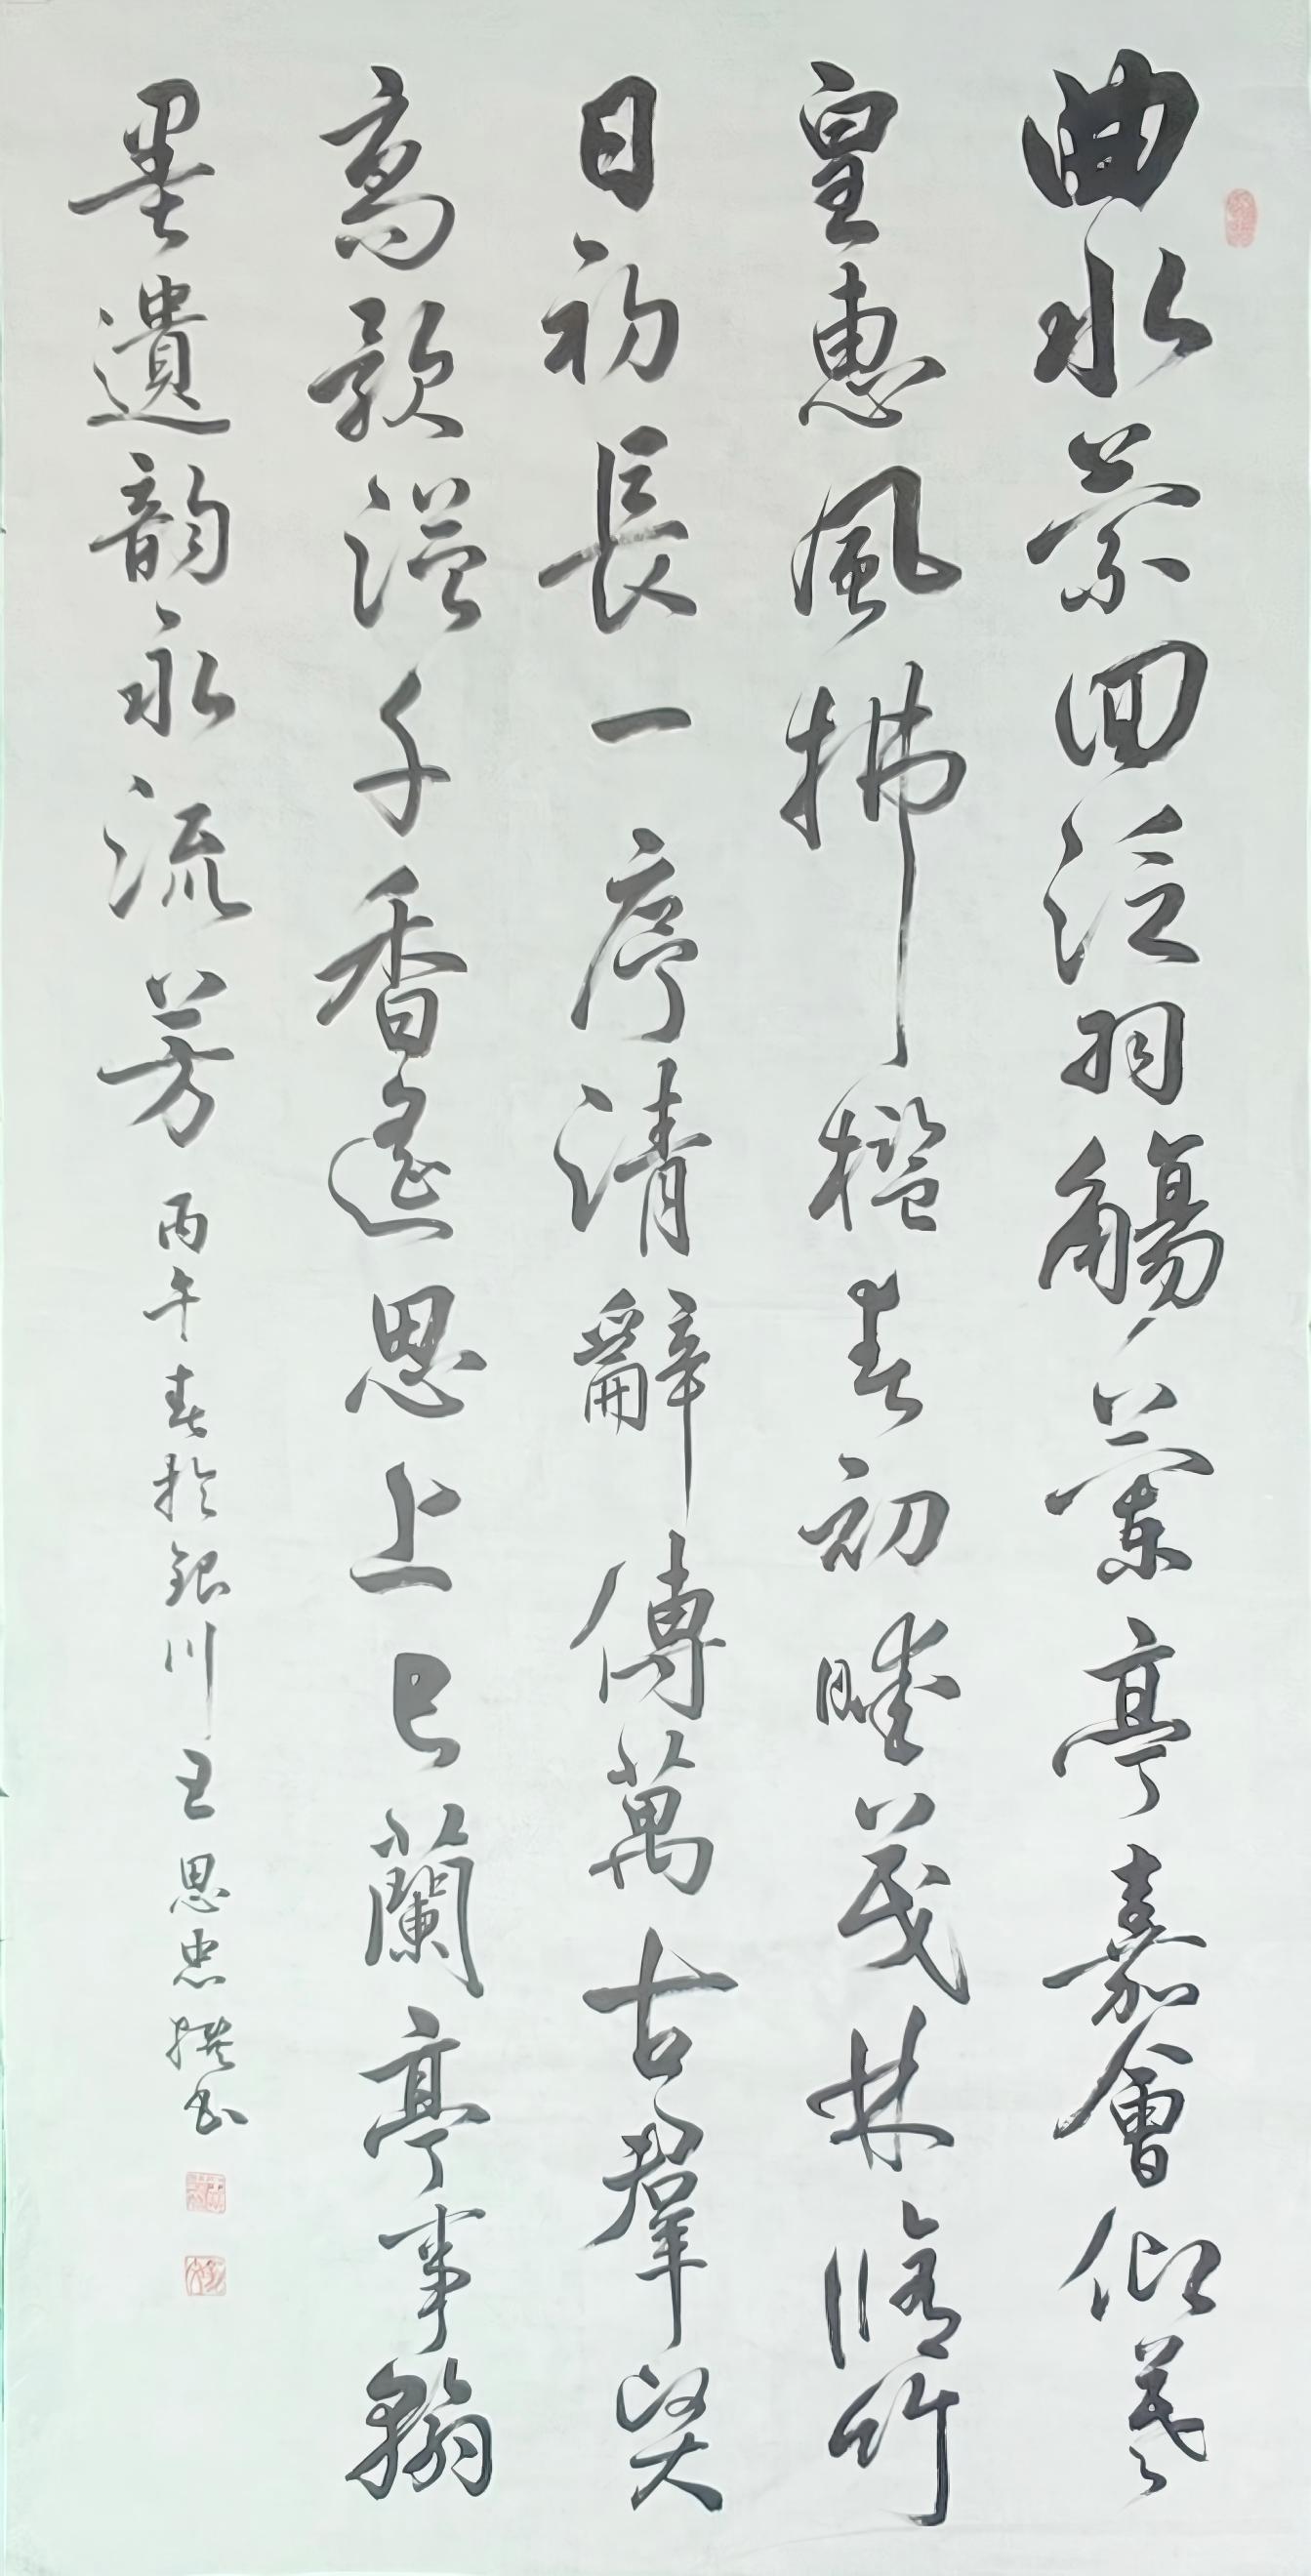 曲水萦回泛羽觴蘭亭嘉會仰羲
皇惠風拂檻春初曉茂林脩竹
日初長一序清辭傳萬古羣賢
高歌溢千香遙思上巳蘭亭事翰
墨遺韵永流芳 丙午春於銀川王思忠撰书